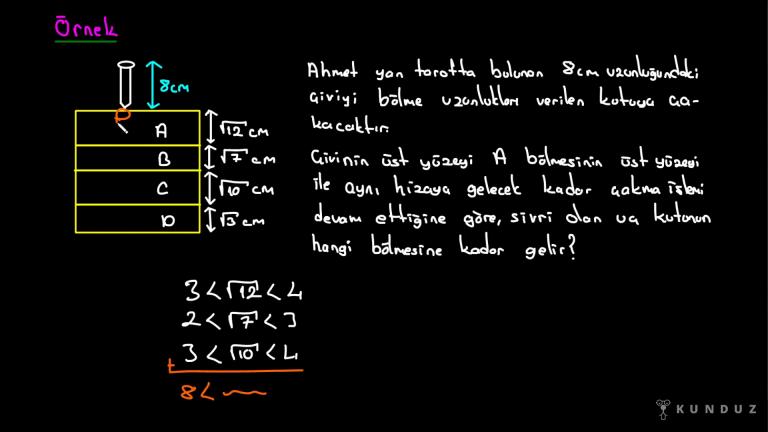 Örnek
8cm
A
√12 cm
B
√7 cm
C
√10 cm
D
√3 cm
Ahmet yan tarafta bulunan 8cm uzunluğundaki
çiviyi bölme uzunlukları verilen kutuya ça-
kacaktır.
Çivinin üst yüzeyi A bölmesinin üst yüzeyi
ile aynı hizaya gelecek kadar çakma işlemi
devam ettiğine göre, sivri olan uç kutunun
hangi bölmesine kadar gelir?
3 < √12 < 4
2 < √7 < 3
+ 3 < √10 < 4
8 <
KUNDUZ